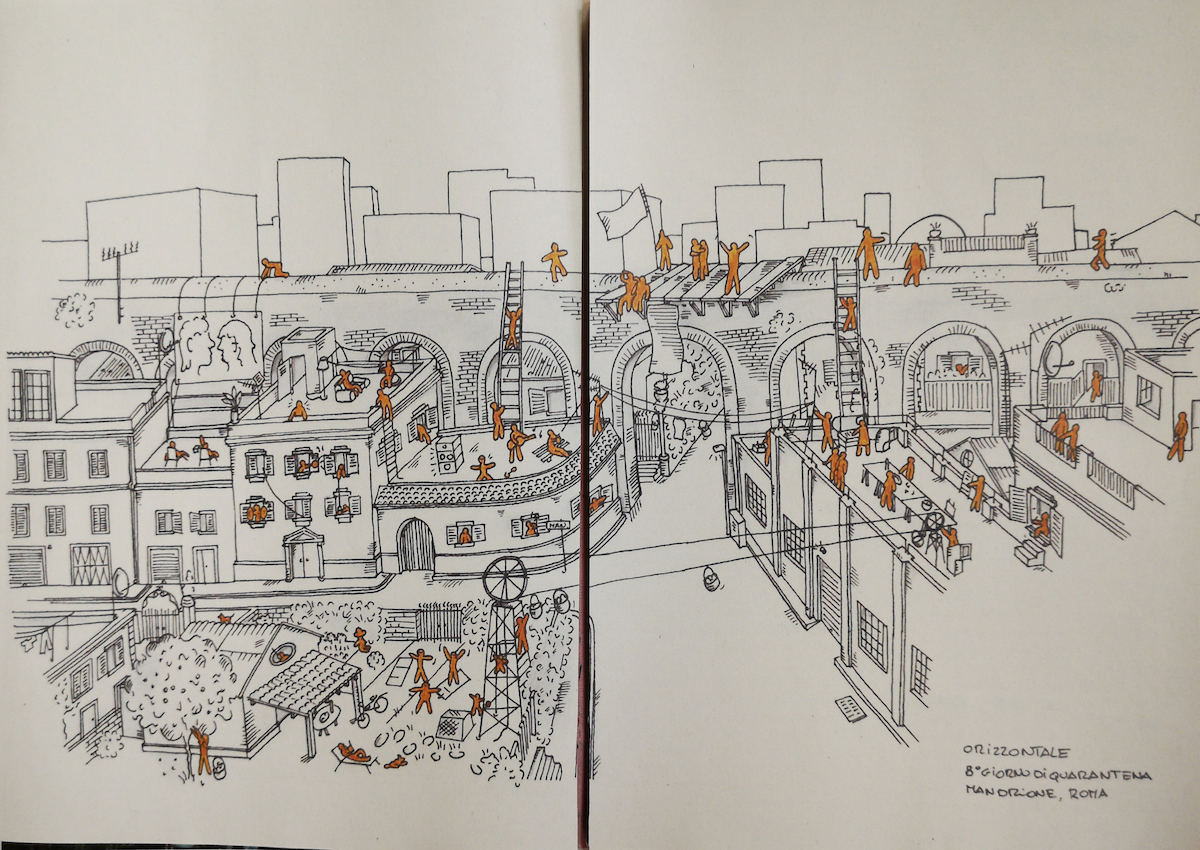 ORIZZONTALE
8° GIORNO DI QUARANTENA
MANDRIONE, ROMA